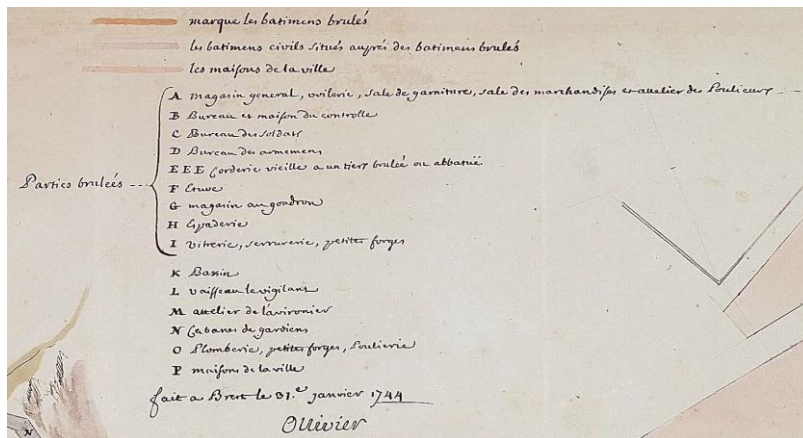 marque les batimens brulés
les batimens civils situés auprés des batimens brulés
les maisons de la ville
A magasin general, voilerie, sale de garniture, sale des marchandises et attelier des Poulieurs
B Bureau et maison du controlle
C Bureau des soldats
D Bureau des armemens
E E E Corderie vieille a un tiers brulée ou abbatuë
Parties brulées
F Etuve
G magasin au goadron
H Espaderie
I vitrerie, serrurerie, petites forges
K Bassin
L vaisseau le vigilant
M attelier de l'avironier
N Cabanes de gardiens
O Plomberie, petites forges, Poulierie
P maisons de la ville
fait a Brest le 31.e janvier 1744
Ollivier
N